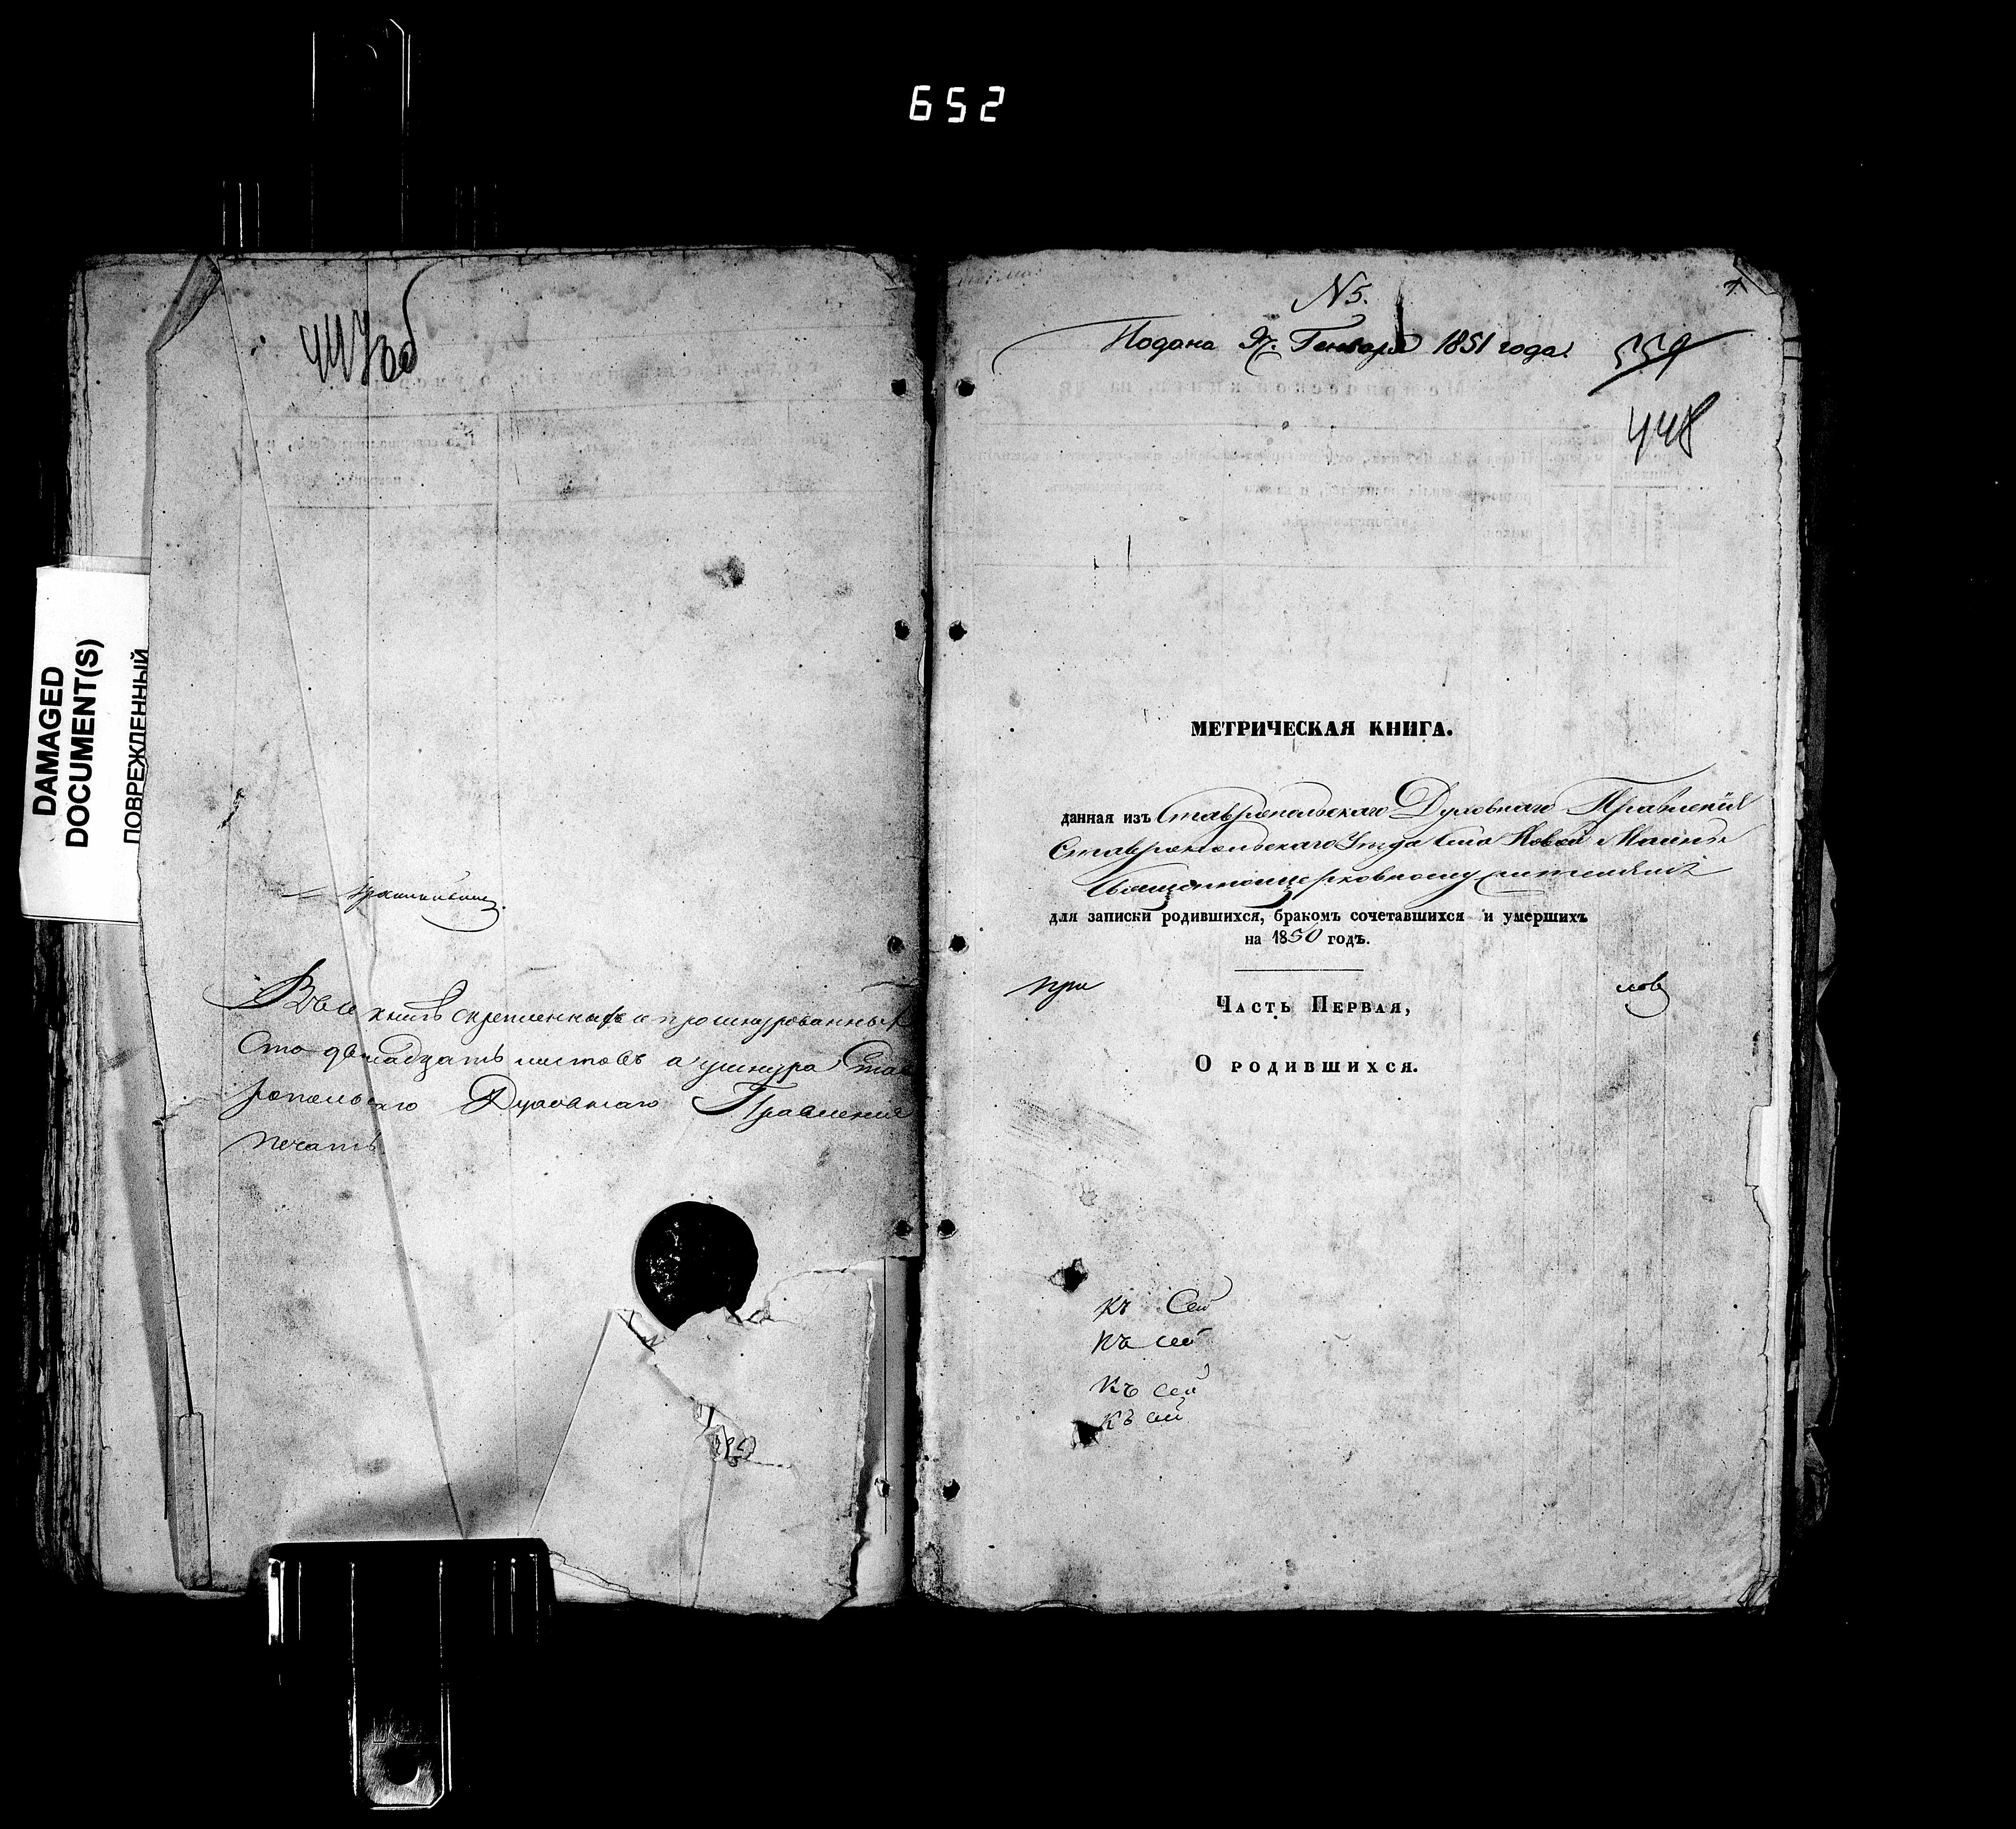 652
447 об
DAMAGED
DOCUMENT(S)
ПОВРЕЖДЕННЫЙ
Въ сей книгѣ скрепленныхъ и прошнурованныхъ
Сто двенадцать листовъ а у шнура Став
ропольскаго Духовнаго Правления
печать
N 5.
1
Подана Генваря 1851 года.
559
448
МЕТРИЧЕСКАЯ КНИГА.
данная изъ Ставропольскаго Духовнаго Правления
Ставропольскаго Уезда села Новой Майны
Священноцерковнослужителямъ
для записки родившихся, бракомъ сочетавшихся и умершихъ
на 1850 годъ.
при
Часть Первая,
О родившихся.
къ Сей
къ сей
къ сей
къ сей